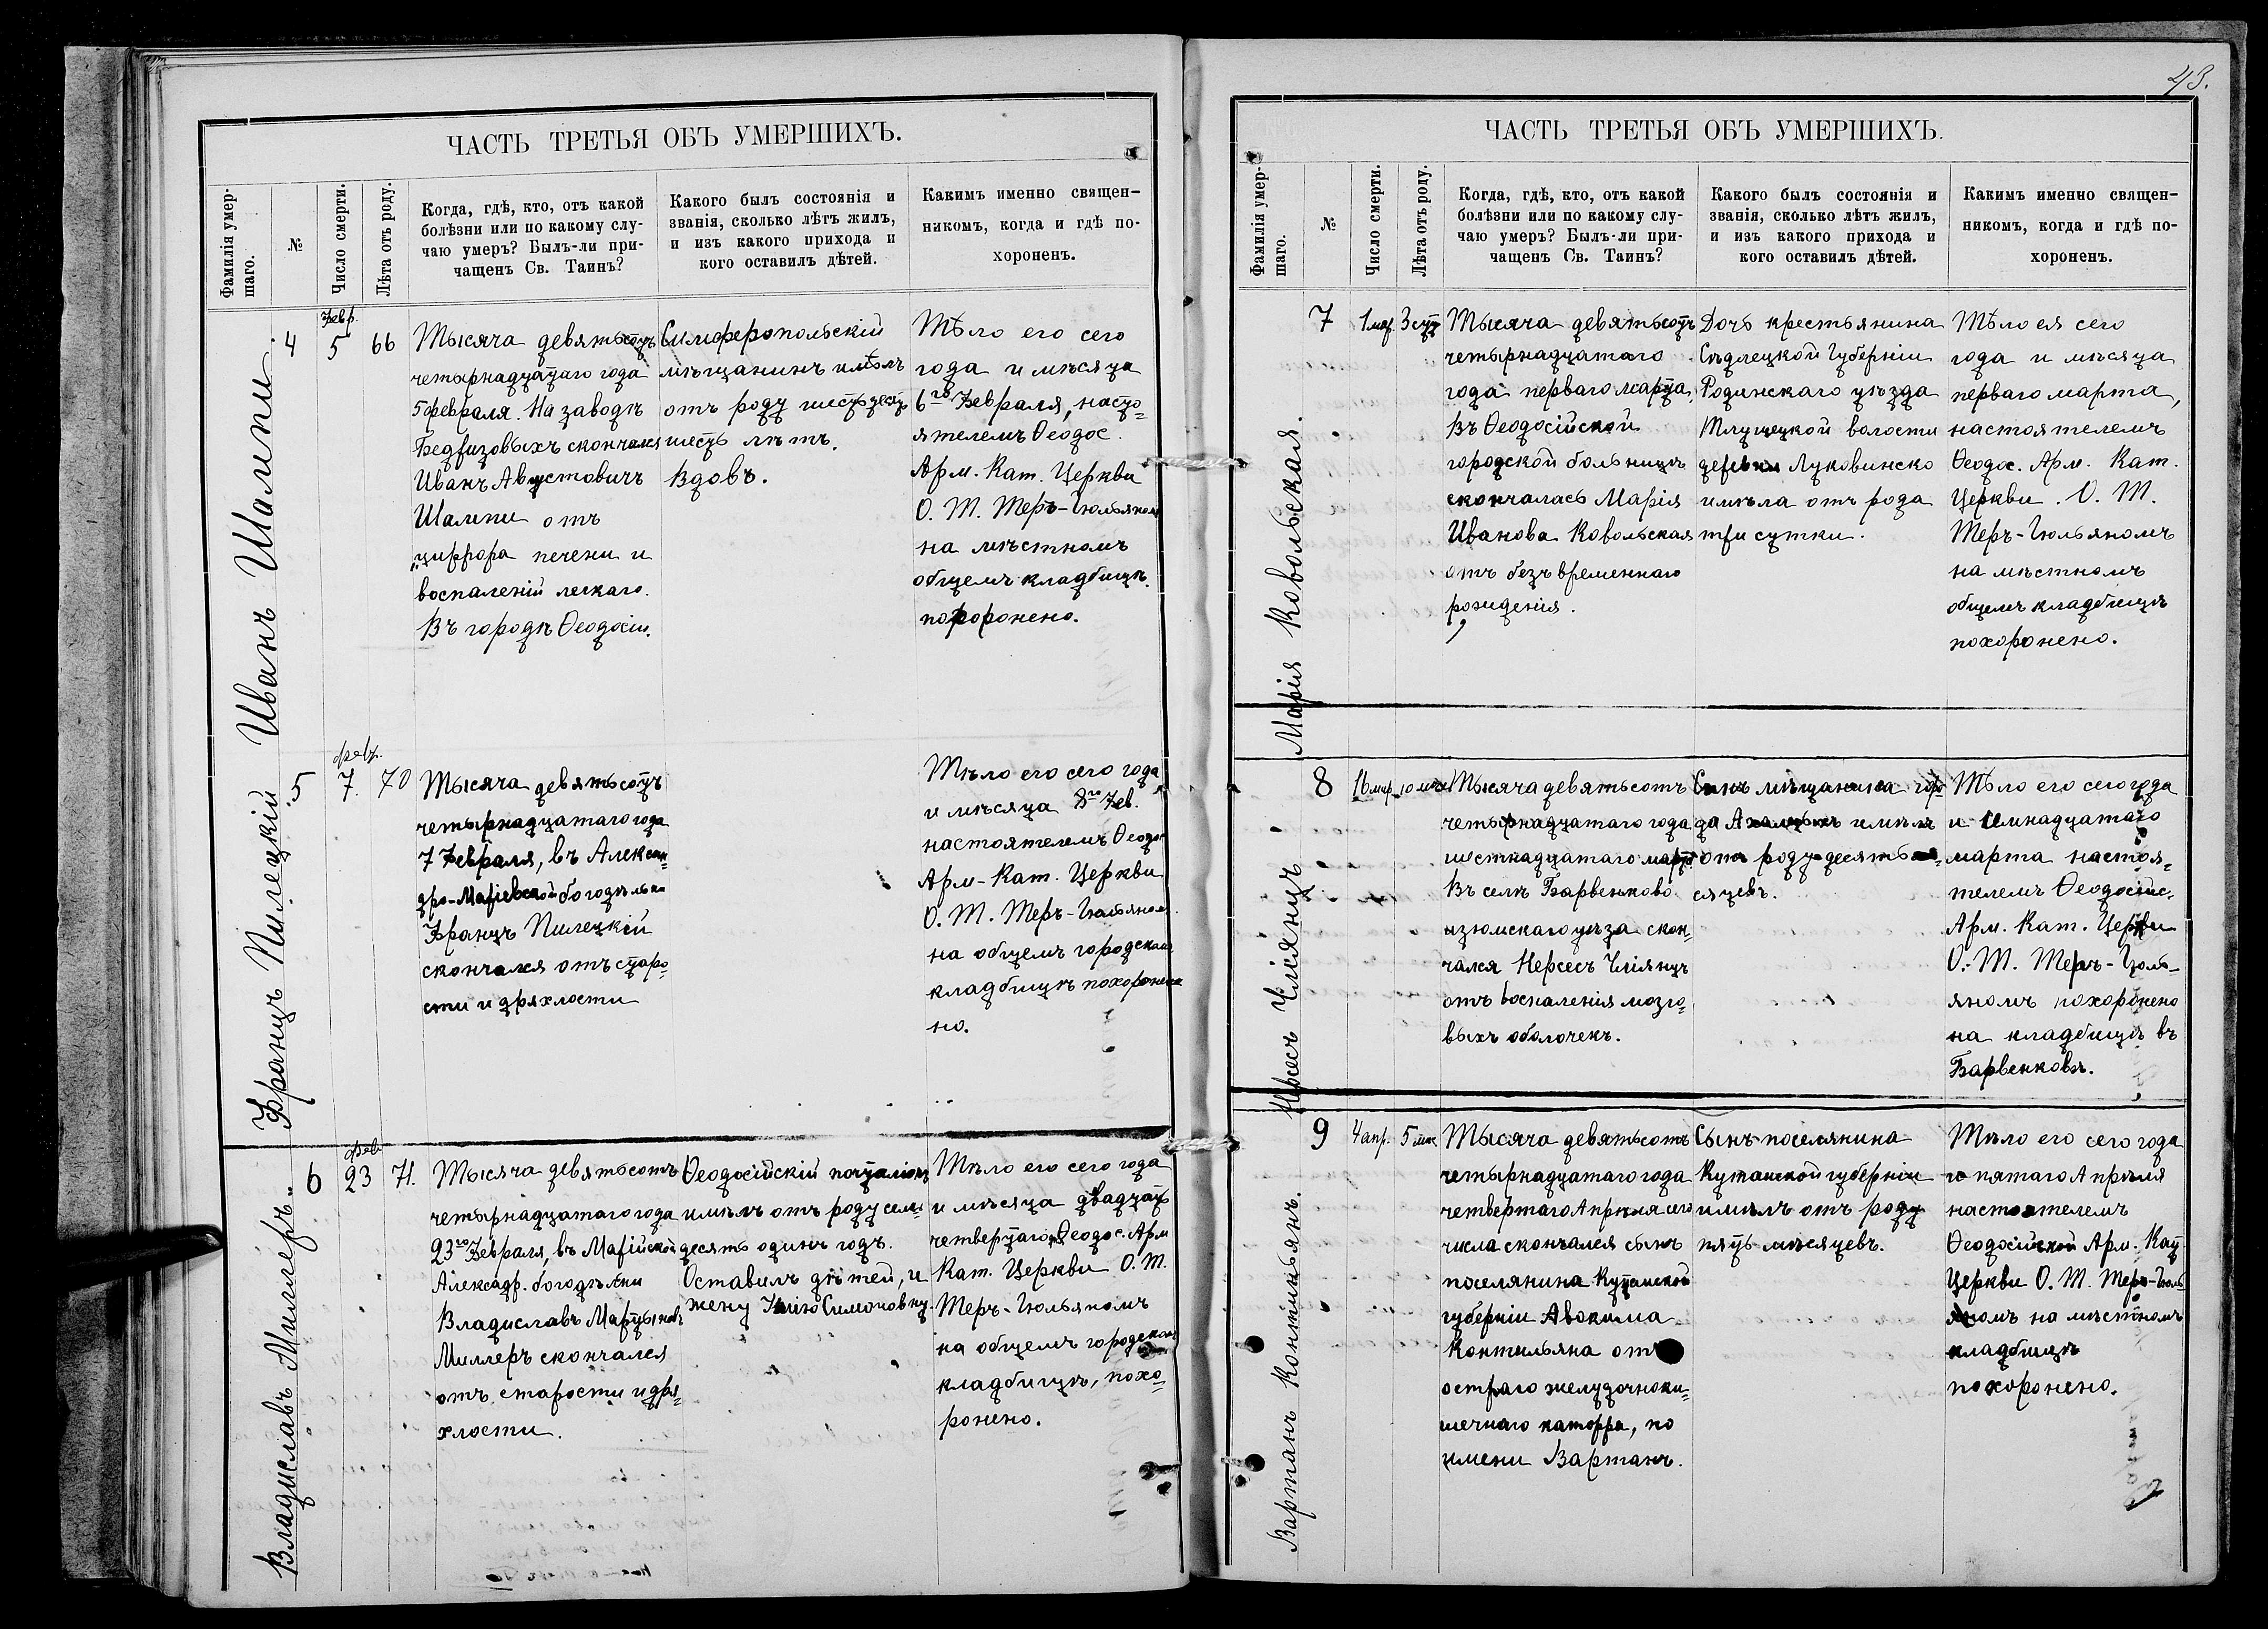 43.
ЧАСТЬ ТРЕТЬЯ ОБЪ УМЕРШИХЪ.
Фамилія умер-
шаго.
№
Число смерти.
Лѣта отъ роду.
Когда, гдѣ, кто, отъ какой
болѣзни или по какому слу-
чаю умеръ? Былъ-ли при-
чащенъ Св. Таинъ?
Какого былъ состоянія и
званія, сколько лѣтъ жилъ,
и изъ какого прихода и
кого оставилъ дѣтей.
Какимъ именно священ-
никомъ, когда и гдѣ по-
хороненъ.
Иванъ Шалпи
4
Февр.
5
66
Тысяча девятьсотъ
четырнадцатаго года
5 февраля. На заводѣ
Бедризовыхъ скончался
Иванъ Августовичъ
Шалпи отъ
цирроза печени и
воспаленій легкаго.
Въ городѣ Ѳеодосіи.
Симферопольскій
мѣщанинъ имѣлъ
отъ роду шестьдесятъ
шесть лѣтъ.
Вдовъ.
Тѣло его сего
года и мѣсяца
6го Февраля, насто-
ятелемъ Ѳеодос.
Арм. Кат. Церкви
О. Т. Теръ-Гюльяномъ
на мѣстномъ
общемъ кладбищѣ
похоронено.
Францъ Пилецкій
5
февр.
7.
70
Тысяча девятьсотъ
четырнадцатаго года
7 Февраля, въ Алексан-
дро-Маріевской богодѣльни
Францъ Пилецкій
скончался отъ старо-
сти и дряхлости
Тѣло его сего года
и мѣсяца 8го Фев.
настоятелемъ Ѳеодос
Арм-Кат. Церкви
О. Т. Теръ-Гюльяномъ
на общемъ городскомъ
кладбищѣ похороне
но.
Владиславъ Миллеръ
6
Фев
23
71.
Тысяча девятьсотъ
четырнадцатаго года
23го Февраля, въ Маріиской
Александр. богодѣльни
Владиславъ Мартыновъ
Миллеръ скончался
отъ старости и дря-
хлости.
Ѳеодосійскій почталіонъ
имѣлъ отъ роду семь
десять одинъ годъ.
Оставилъ дѣтей, и
жену Симоновну.
Тѣло его сего года
и мѣсяца двадцать
четвертаго Ѳеодос. Арм
Кат. Церкви О. Т.
Теръ-Гюльяномъ
на общемъ городскомъ
кладбищѣ, похо-
ронено.
ЧАСТЬ ТРЕТЬЯ ОБЪ УМЕРШИХЪ.
Фамилія умер-
шаго.
№
Число смерти.
Лѣта отъ роду.
Когда, гдѣ, кто, отъ какой
болѣзни или по какому слу-
чаю умеръ? Былъ-ли при-
чащенъ Св. Таинъ?
Какого былъ состоянія и
званія, сколько лѣтъ жилъ,
и изъ какого прихода и
кого оставилъ дѣтей.
Какимъ именно священ-
никомъ, когда и гдѣ по-
хороненъ.
Марія Ковольская.
7
1 мар.
3 сут
Тысяча девятьсотъ
четырнадцатаго
года перваго марта,
въ Ѳеодосійской
городской больницѣ
скончалась Марія
Иванова Ковольская
отъ безъ временнаго
рожденія.
Дочь крестьянина
Сѣдлецкой Губерніи
Родинскаго уѣзда
Тлущецкой волости
деревни Луковинско
имѣла отъ рода
три сутки.
Тѣло ея сего
года и мѣсяца
перваго марта,
настоятелемъ
Ѳеодос. Арм. Кат.
Церкви. О. Т.
Теръ-Гюльяномъ
на мѣстномъ
общемъ кладбищѣ
похоронено.
Нерсесъ Чліянцъ
8
16 мар.
10 мѣс
Тысяча девятьсотъ
четырнадцатаго года
шестнадцатаго марта
въ селѣ Барвенково
изюмскаго уѣза скон-
чался Нерсесъ Чліянцъ
отъ воспаленія мозго-
выхъ оболочекъ.
Сынъ мѣщанина горо
да имѣлъ
отъ роду десять мѣ-
сяцевъ.
Тѣло его сего года
и семнадцатаго
марта настоя-
телемъ Ѳеодосійс.
Арм. Кат. Церкви
О. Т. Теръ-Гюль-
яномъ похоронено
на кладбищѣ въ
Барвенковѣ.
Вартанъ Контильянъ.
9
4 апр.
5 мѣс
Тысяча девятьсотъ
четырнадцатаго года
четвертаго Апрѣля сего
числа скончался сынъ
поселянина Кутаиской
губерніи Авакима
Контильяна отъ
остраго желудочноки-
шечнаго каторра, по
имени Вартанъ.
Сынъ поселянина
Кутаиской губерніи
имѣлъ отъ роду
пять мѣсяцевъ.
Тѣло его сего года
го пятаго Апрѣля
настоятелемъ
Ѳеодосійской Арм. Кат
Церкви О. Т. Теръ-Гюль
яномъ на мѣстномъ
кладбищѣ
похоронено.